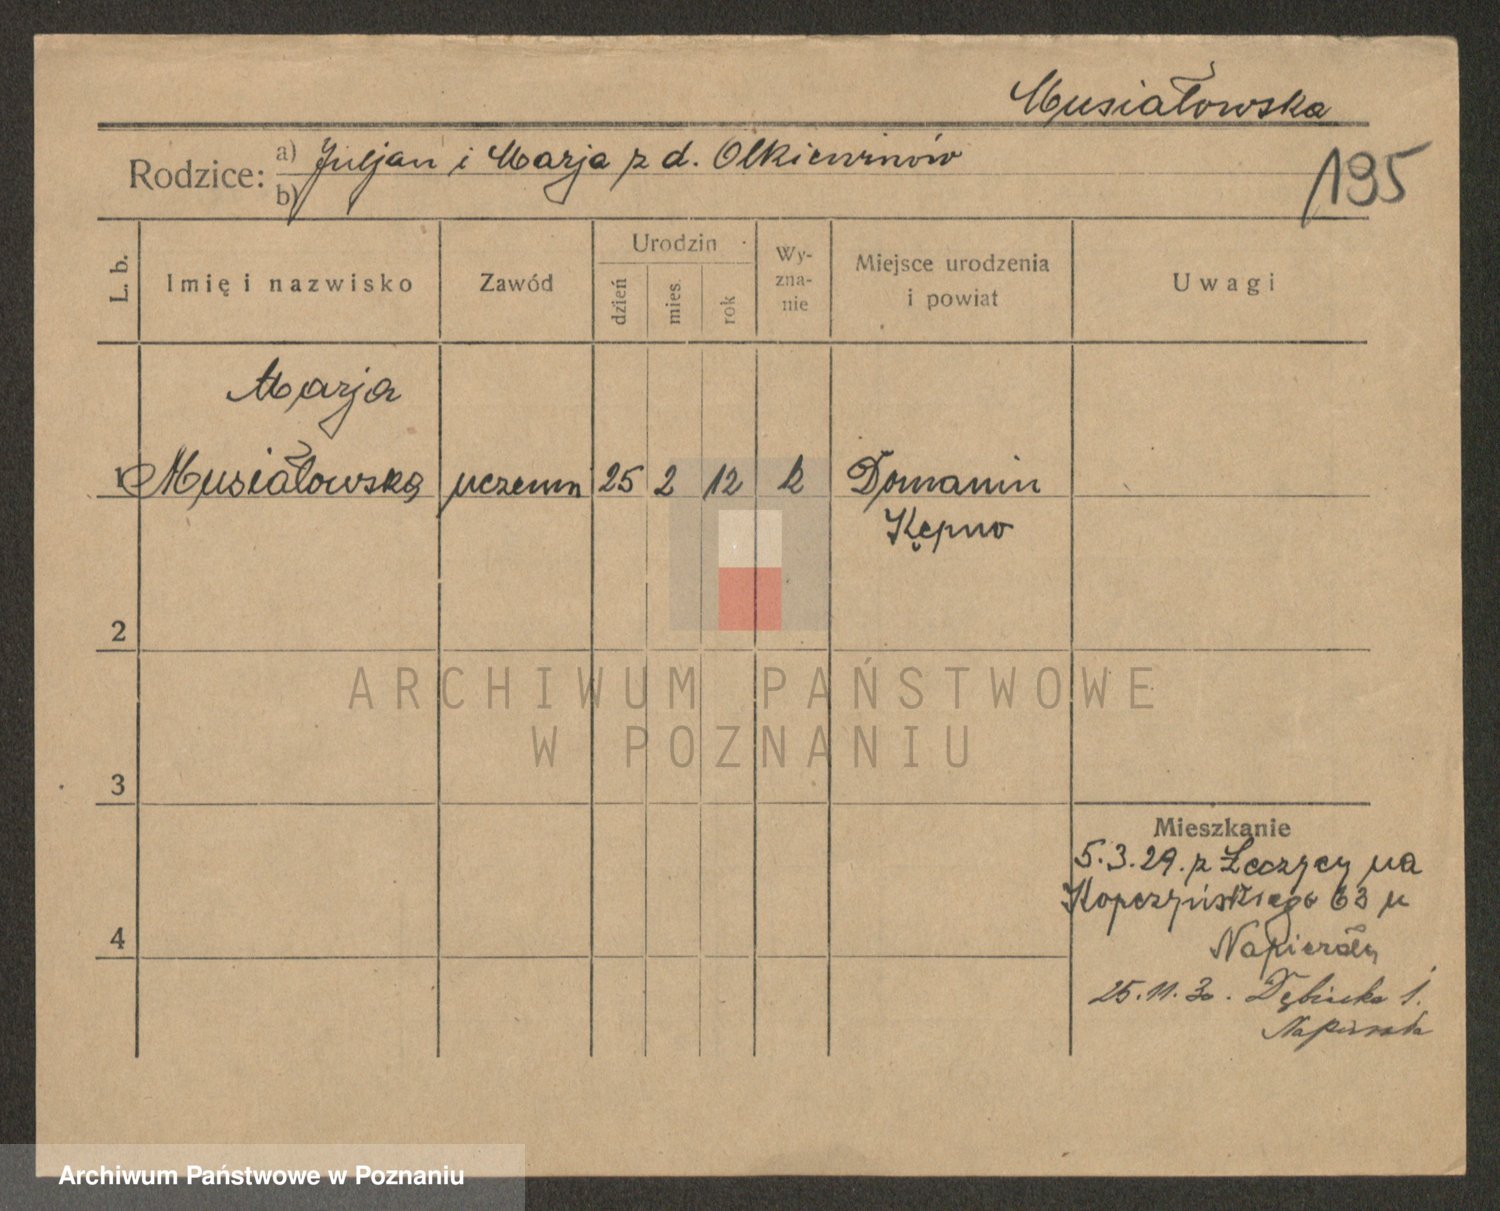 Musiałowska
Rodzice: a) Juljan i Marja z d. Olkiewiczów
b)
195
L. b.
Imię i nazwisko
Zawód
Urodzin
dzień
mies.
rok
Wy-
zna-
nie
Miejsce urodzenia
i powiat
Uwagi
Marja
1 Musiałowska uczenn 25 2 12 k Domanin
Kępno
2
ARCHIWUM PAŃSTWOWE
W POZNANIU
3
Mieszkanie
5.3.29. z Łeczycy na
Kopczyńskiego 63 u
Napierały
4
25.11.30. Dębińska 1.
Napierała
Archiwum Państwowe w Poznaniu